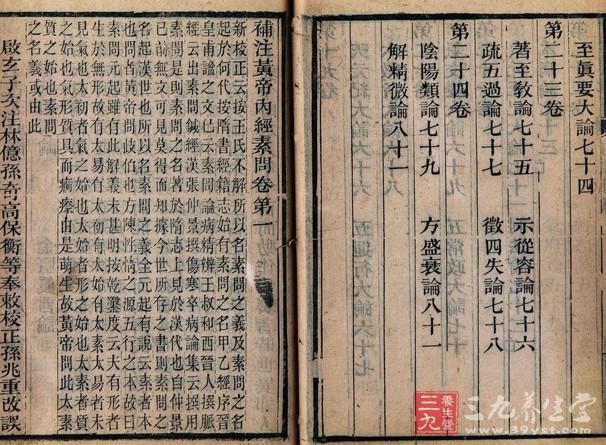 至眞要大論七十四
第二十三卷
著至敎論七十五　示從容論七十六
疏五過論七十七　徵四失論七十八
第二十四卷
陰陽類論七十九　方盛衰論八十一
解精微論八十一
補注黃帝內經素問卷第一
新校正云按王氏不解所以名素問之義及素問之名
起於何代按隋書經籍志始有素問之名甲乙經序晉
皇甫謐之文已云素問論病精辨王叔和西晉人撰脈
經云出素問鍼經漢張仲景撰傷寒卒病論集云撰用
素問是則素問之名著於隋志上見於漢代也自仲景
已前無文可見莫得而知據今世所存之書則素問之
名起漢世也所以名素問之義全元起有說云素者本
也問者黃帝問歧伯也方陳性情之源五行之本故曰
素問元起雖有此解義未甚明按乾鑿度云夫有形者
生於無形故有太易有太初有太始有太素太易者未
見氣也太初者氣之始也太始者形之始也太素者質
之始也氣形質具而痾瘵由是萌生故黃帝問此太素
質之始也素問
之名義或由此
啟玄子次注林億孫奇高保衡等奉敕校正孫兆重改誤
三九養生堂
三九养生堂
www.39yst.com